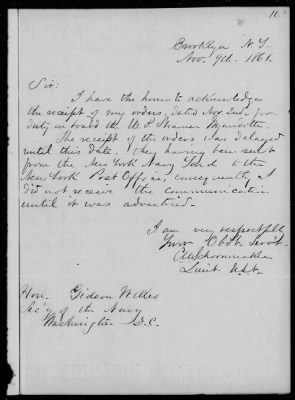 10.
Brooklyn N.Y.
Nov. 9th 1861.
Sir:
I have the honor to acknowledge
the receipt of my orders, dated Nov 2nd, for
duty on board the U.S. Steamer
The receipt of the orders was delayed
until this date, they having been sent
from the New York Navy Yard to the
New York Post Office, consequently, I
did not receive the communication
until it was advertised.
I am very respectfully
Your Obdt. Servt.
C.M. Schoonmaker
Lieut. U.S.N.
Hon. Gideon Welles
Sec'y of the Navy
Washington D.C.